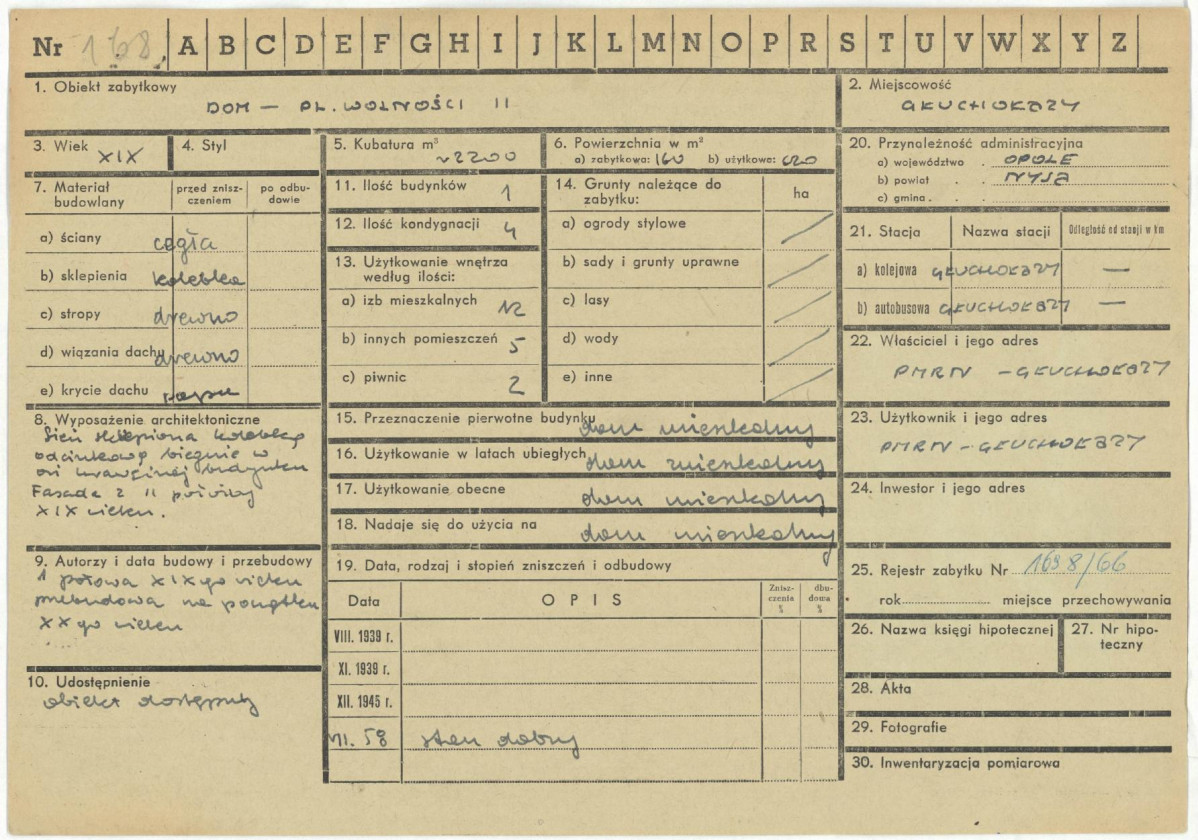 Nr 168. A B C D E F G H I J K L M N O P R S T U V W X Y Z
1. Obiekt zabytkowy
DOM — PL. WOLNOŚCI 11
2. Miejscowość
GŁUCHOŁAZY
3. Wiek XIX
4. Styl
5. Kubatura m³
~2200
6. Powierzchnia w m²
a) zabytkowa: 160 b) użytkowe: 620
7. Materiał budowlany
przed zniszczeniem
po odbudowie
a) ściany cegła
b) sklepienia kolebka
c) stropy drewno
d) wiązania dachu drewno
e) krycie dachu papa
8. Wyposażenie architektoniczne
Sień sklepiona kolebką
odcinkową biegnie w
osi budynku
Fasada z II połowy
XIX wieku.
9. Autorzy i data budowy i przebudowy
1 połowa XIXgo wieku
przebudowa na początku
XXgo wieku
10. Udostępnienie
obiekt dostępny
11. Ilość budynków 1
12. Ilość kondygnacji 4
13. Użytkowanie wnętrza
według ilości:
a) izb mieszkalnych 12
b) innych pomieszczeń 5
c) piwnic 2
14. Grunty należące do
zabytku:
ha
a) ogrody stylowe /
b) sady i grunty uprawne /
c) lasy /
d) wody /
e) inne /
15. Przeznaczenie pierwotne budynku dom mieszkalny
16. Użytkowanie w latach ubiegłych dom mieszkalny
17. Użytkowanie obecne dom mieszkalny
18. Nadaje się do użycia na dom mieszkalny
19. Data, rodzaj i stopień zniszczeń i odbudowy
Data
OPIS
Znisz-
czenia
%
dbu-
dowa
%
VIII. 1939 r.
XI. 1939 r.
XII. 1945 r.
VII. 58 stan dobry
20. Przynależność administracyjna
a) województwo . OPOLE
b) powiat . . NYSA
c) gmina . . .
21. Stacja
Nazwa stacji
Odległość od stacji w km
a) kolejowa GŁUCHOŁAZY —
b) autobusowa GŁUCHOŁAZY —
22. Właściciel i jego adres
PMRN - GŁUCHOŁAZY
23. Użytkownik i jego adres
PMRN - GŁUCHOŁAZY
24. Inwestor i jego adres
25. Rejestr zabytku Nr 1698/66
rok miejsce przechowywania
26. Nazwa księgi hipotecznej
27. Nr hipo-
teczny
28. Akta
29. Fotografie
30. Inwentaryzacja pomiarowa